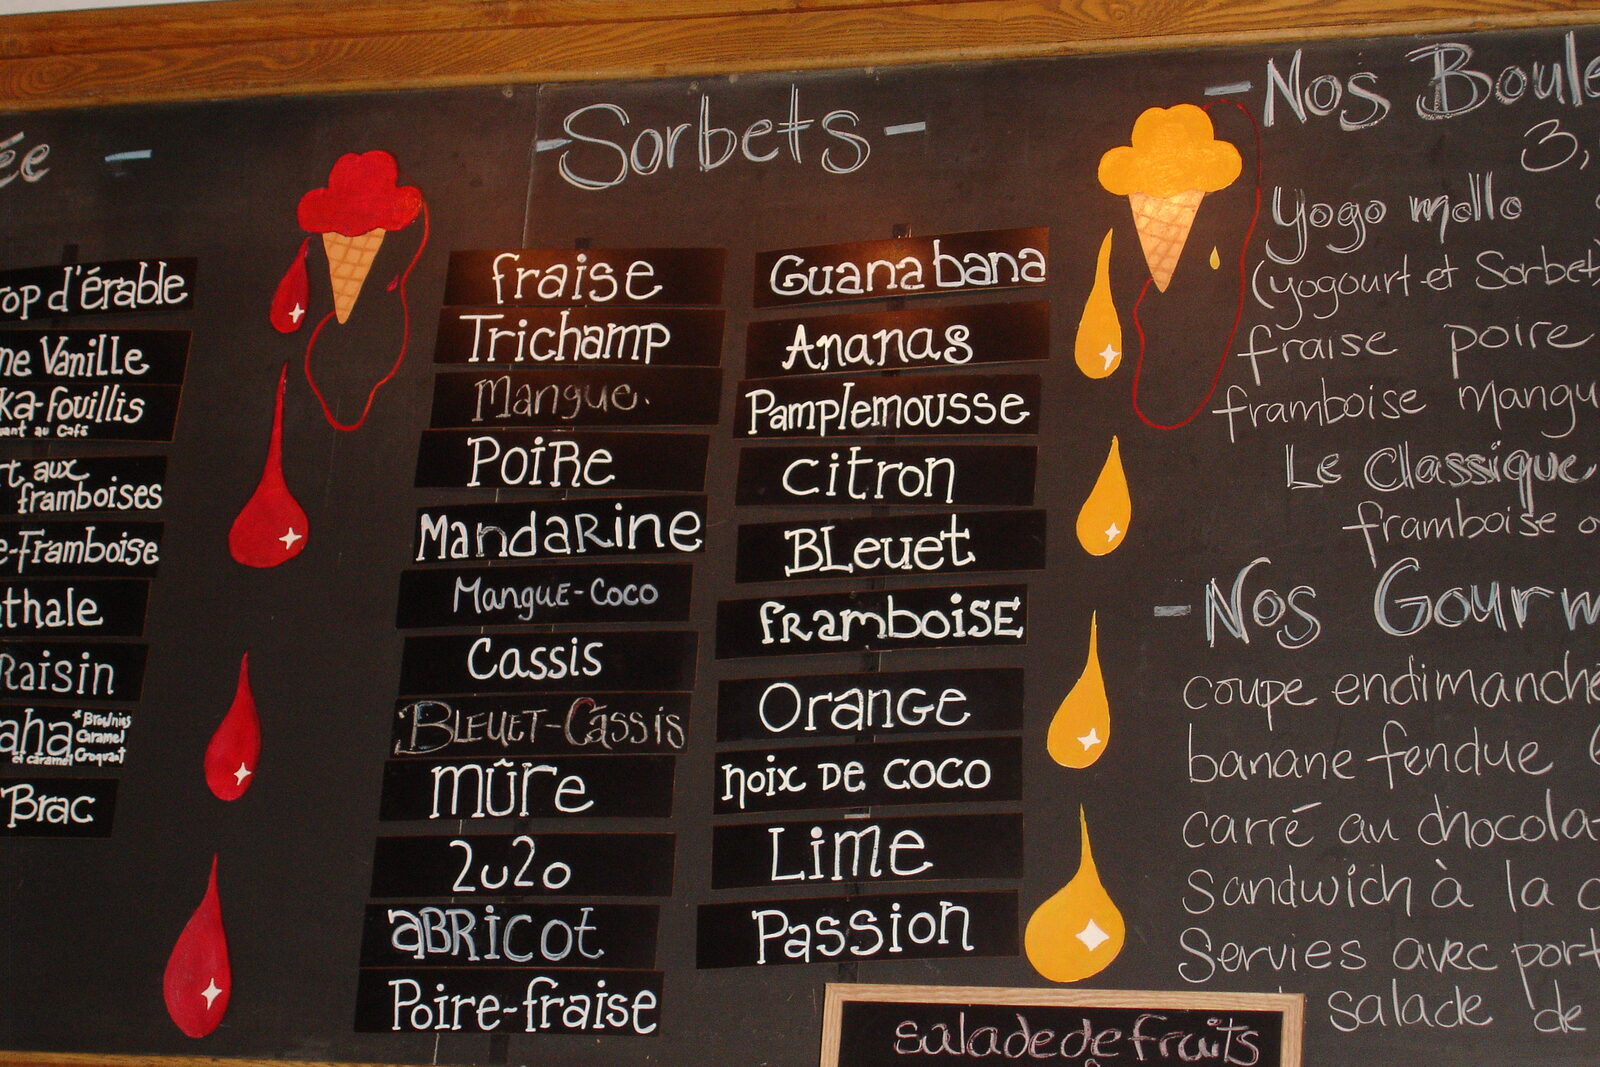 ée -
d'érable
Vanille
fouillis
au Café
aux
framboises
-Framboise
Raisin
*Brownies
Caramel
et caramel Croquant
Brac
- Sorbets -
fraise
Trichamp
Mangue.
Poire
Mandarine
Mangue-Coco
Cassis
Bleuet-Cassis
mûre
2u2o
abricot
Poire-fraise
Guanabana
Ananas
Pamplemousse
citron
Bleuet
framboise
Orange
noix de coco
Lime
Passion
- Nos Boule
3,
yogo mollo
(yogourt et Sorbet)
fraise poire
framboise mangu
Le Classique
framboise o
- Nos Gourm
coupe endimanché
banane fendue (
carré au chocola
Sandwich à la c
Servies avec port
salade de
salade de fruits